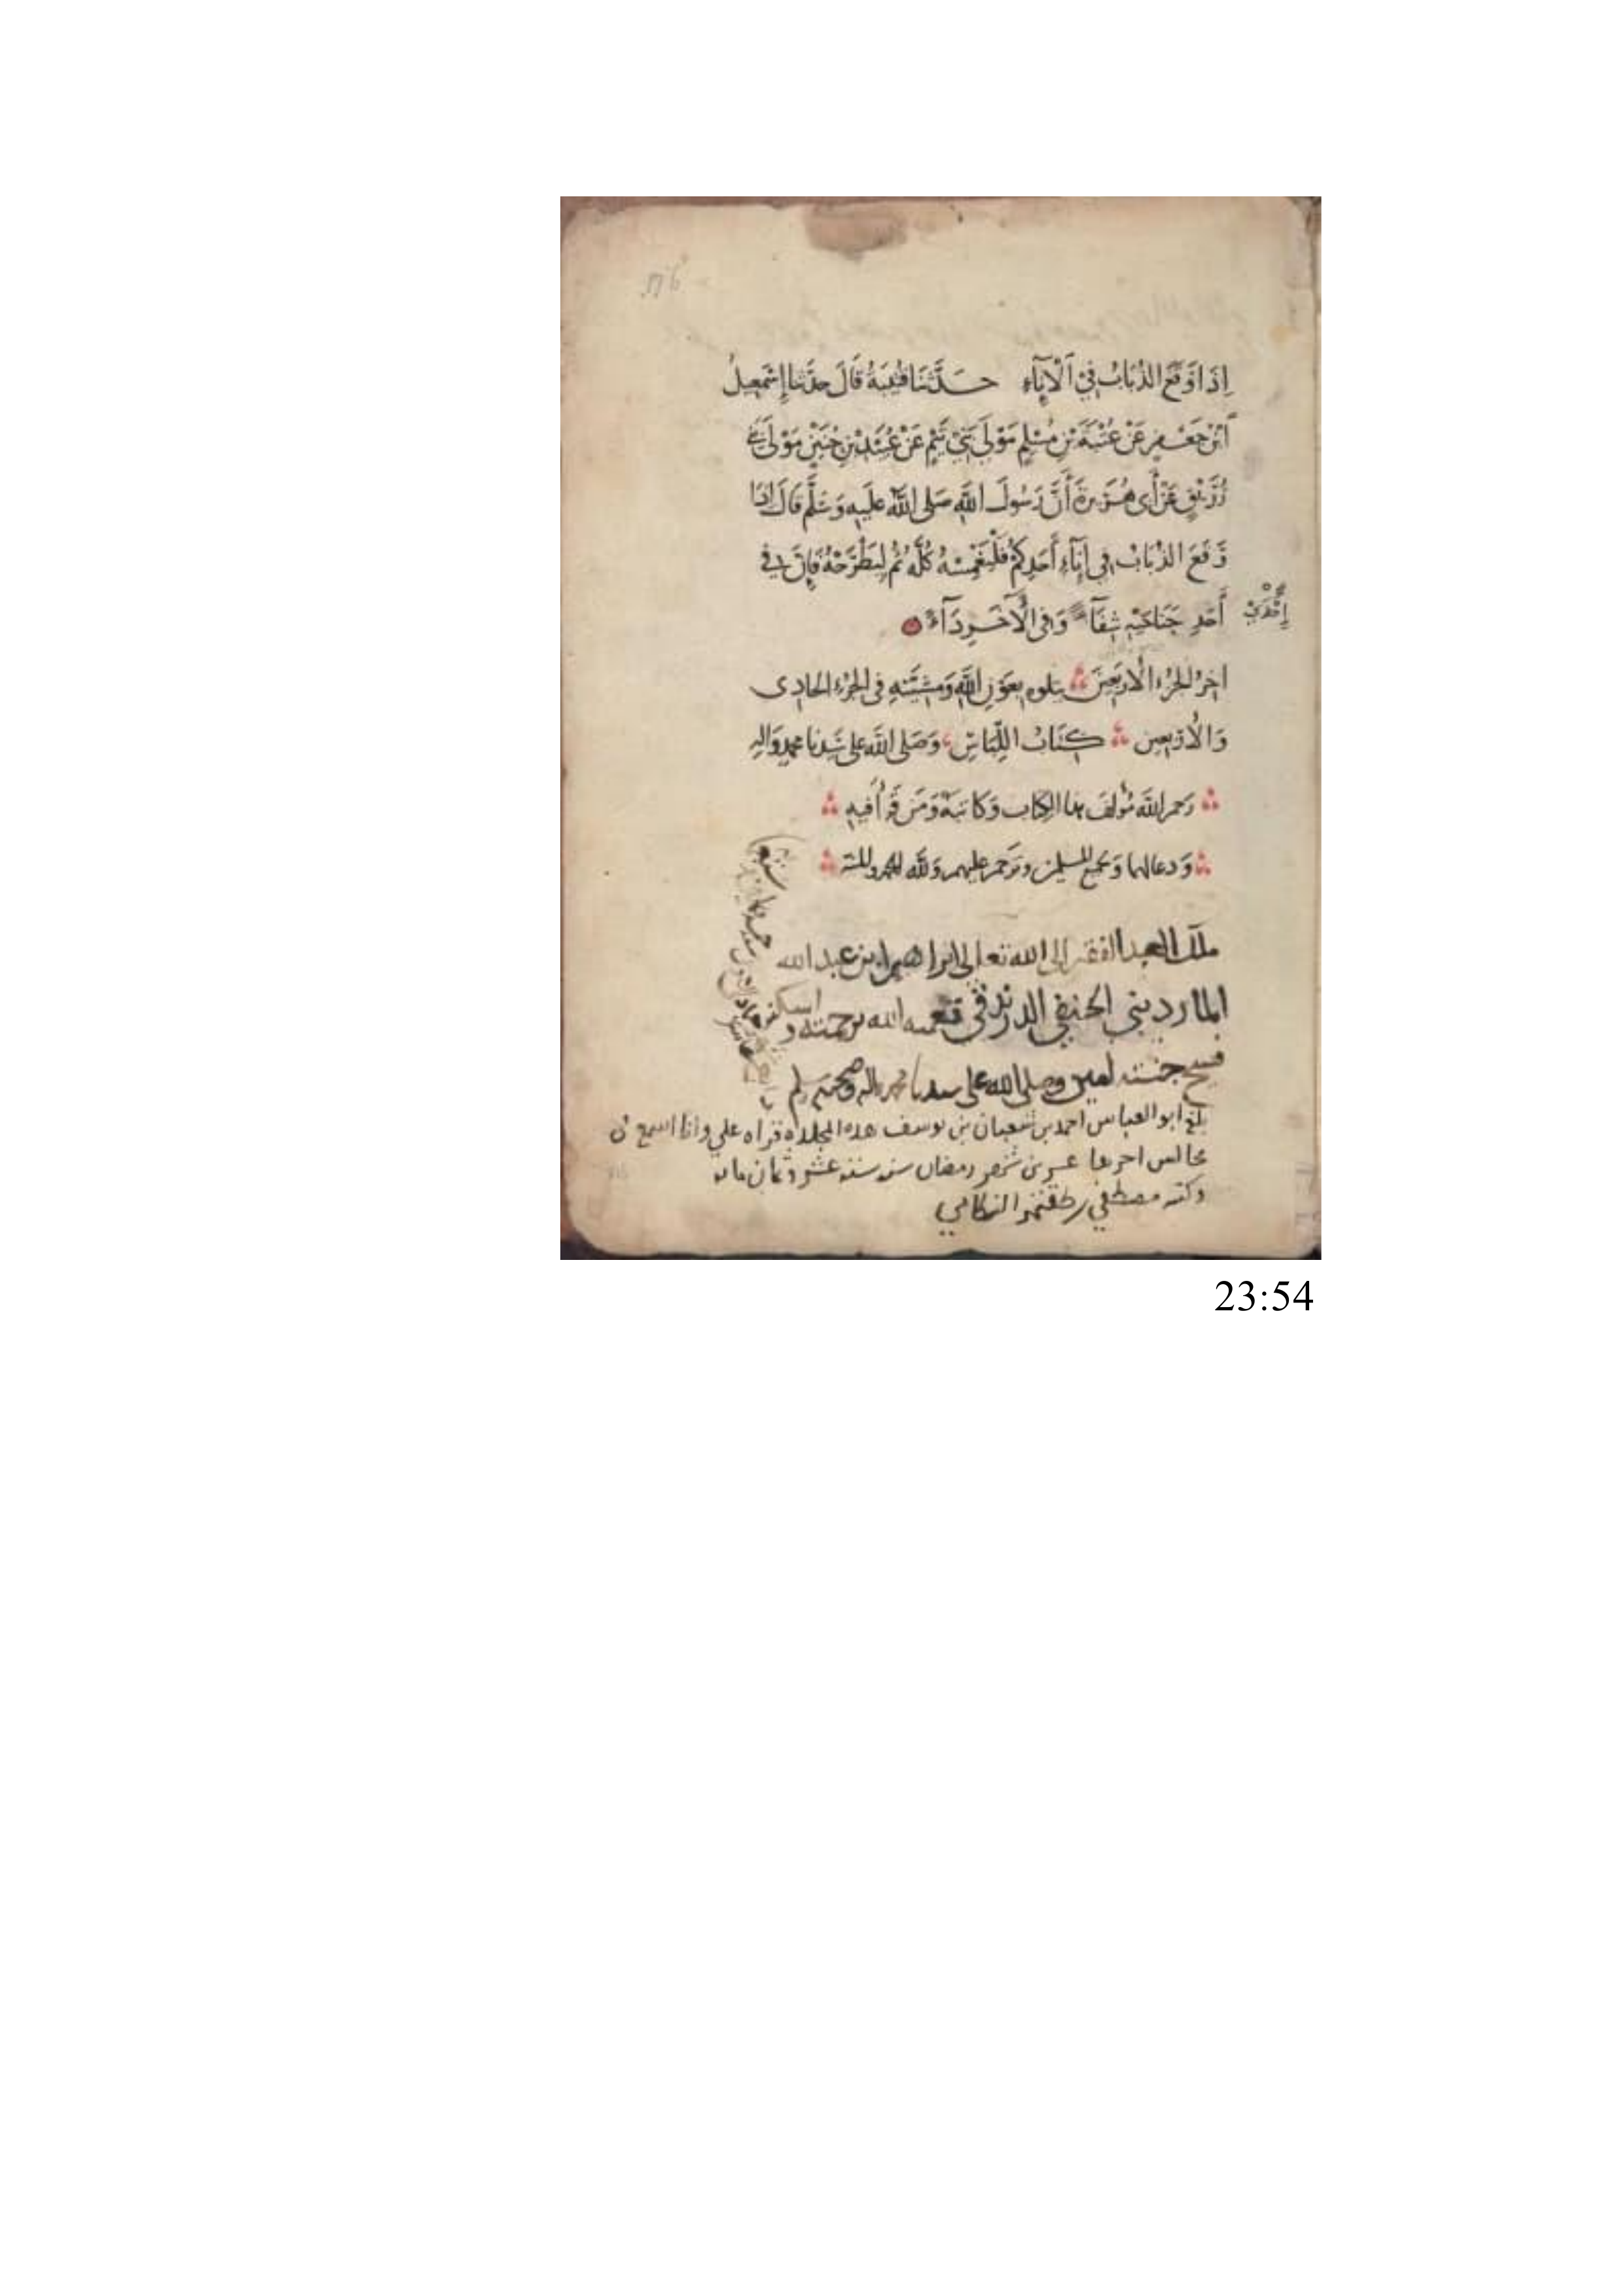 إِذَا وَقَعَ الذُّبَابُ فِي الْإِنَاءِ حَدَّثَنَا قُتَيْبَةُ قَالَ حَدَّثَنَا إِسْمَعِيلُ
ابْنُ جَعْفَرٍ عَنْ عُتْبَةَ بْنِ مُسْلِمٍ مَوْلَى بَنِي تَيْمٍ عَنْ عُبَيْدِ بْنِ حُنَيْنٍ مَوْلَى بَنِي
زُرَيْقٍ عَنْ أَبِي هُرَيْرَةَ أَنَّ رَسُولَ اللَّهِ صَلَّى اللَّهُ عَلَيْهِ وَسَلَّمَ قَالَ إِذَا
وَقَعَ الذُّبَابُ فِي إِنَاءِ أَحَدِكُمْ فَلْيَغْمِسْهُ كُلَّهُ ثُمَّ لِيَطْرَحْهُ فَإِنَّ فِي
أَحَدِ جَنَاحَيْهِ شِفَآءً وَفِي الْآخَرِ دَآءً
إِحْدَى
اخِرُ الجُزْءِ الْارْبَعِينَ يتلوه بِعَوْنِ اللَّهِ وَمَشِيَّتِهِ فِي الجُزْءِ الحَادِي
وَالْأَرْبَعِين كِتَابُ اللِّبَاسِ وَصَلَى اللَّهُ عَلى سَيّدِنَا محمدٍ وَالِهِ
رَحِمَ اللَّهُ مُؤلِفَ هذا الكِتَابِ وَكَاتِبَهُ وَمَن قَرَأَ فِيهِ
وَدعا لهما وَلجَميع المسلمِين وَترحم عليهم وَللَّهِ الحمد والمنة
ملك العبد الفقير إلى الله تعالى ابراهيم ابن عبد الله
المارديني الحنفي الدرندقي تغمده الله برحمته واسكنه
فسيح جنته امين وصلى الله على سيدنا محمد واله وصحبه وسلم
بلغ ابو العباس احمد بن شعبان بن يوسف هذه المجلده قراه علي وانا اسمع في
مجالس اخرها عشرين شهر رمضان سنه ستة عشر وثمان مايه
وكتبه مصطفى
23:54